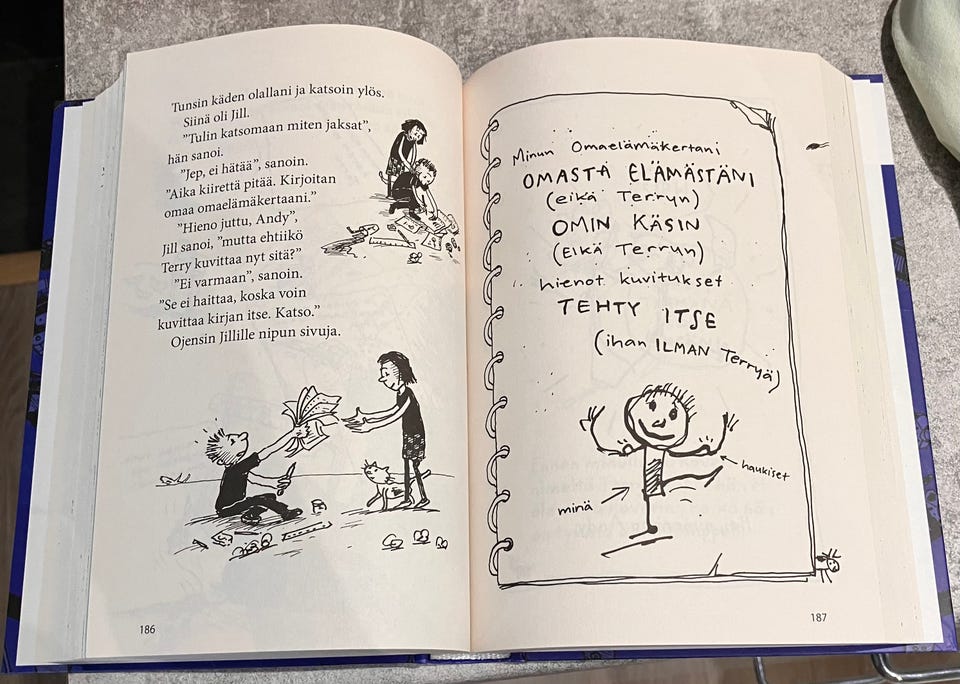 Tunsin käden olallani ja katsoin ylös.
Siinä oli Jill.
”Tulin katsomaan miten jaksat”,
hän sanoi.
”Jep, ei hätää”, sanoin.
”Aika kiirettä pitää. Kirjoitan
omaa omaelämäkertaani.”
”Hieno juttu, Andy”,
Jill sanoi, ”mutta ehtiikö
Terry kuvittaa nyt sitä?”
”Ei varmaan”, sanoin.
”Se ei haittaa, koska voin
kuvittaa kirjan itse. Katso.”
Ojensin Jillille nipun sivuja.
186
Minun Omaelämäkertani
OMASTA ELÄMÄSTÄNI
(eikä Terryn)
OMIN KÄSIN
(Eikä Terryn)
hienot kuvitukset
TEHTY ITSE
(ihan ILMAN Terryä)
haukiset
minä
187